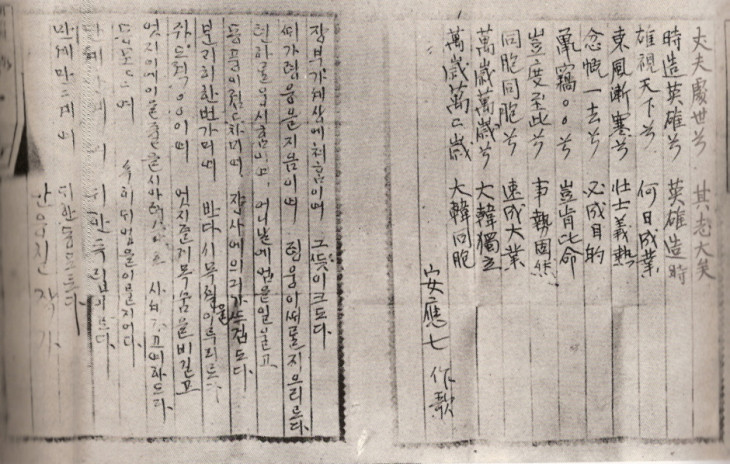 丈夫處世兮 其志大矣
時造英雄兮 英雄造時
雄視天下兮 何日成業
東風漸寒兮 壯士義熱
念慨一去兮 必成目的
鼠竊○○兮 豈肯比命
豈度至此兮 事勢固然
同胞同胞兮 速成大業
萬歲萬歲兮 大韓獨立
萬歲萬々歲 大韓同胞
安應七 作歌
장부가 세상에 처홈이여 그 뜻이 크도다
때가 령웅을 지음이여 령웅이 때를 지으리로다
텬하를 웅시홈이여 어니날에 업을 일울고
동풍이 졈드차미여 쟝사에 의긔가 뜨겁도다
분긔히 한번가미여 반다시 목젹을 이루리로다
쥐도젹○○이여 엇지 즐게 목숨을 비길고
엇지 이에 이을 쥴을 시아려스리요
동포동포여 속히 대업을 이룰지어다
만세만세여 대한독립이로다
만세만만세여 대한동포로다
안응칠 작가